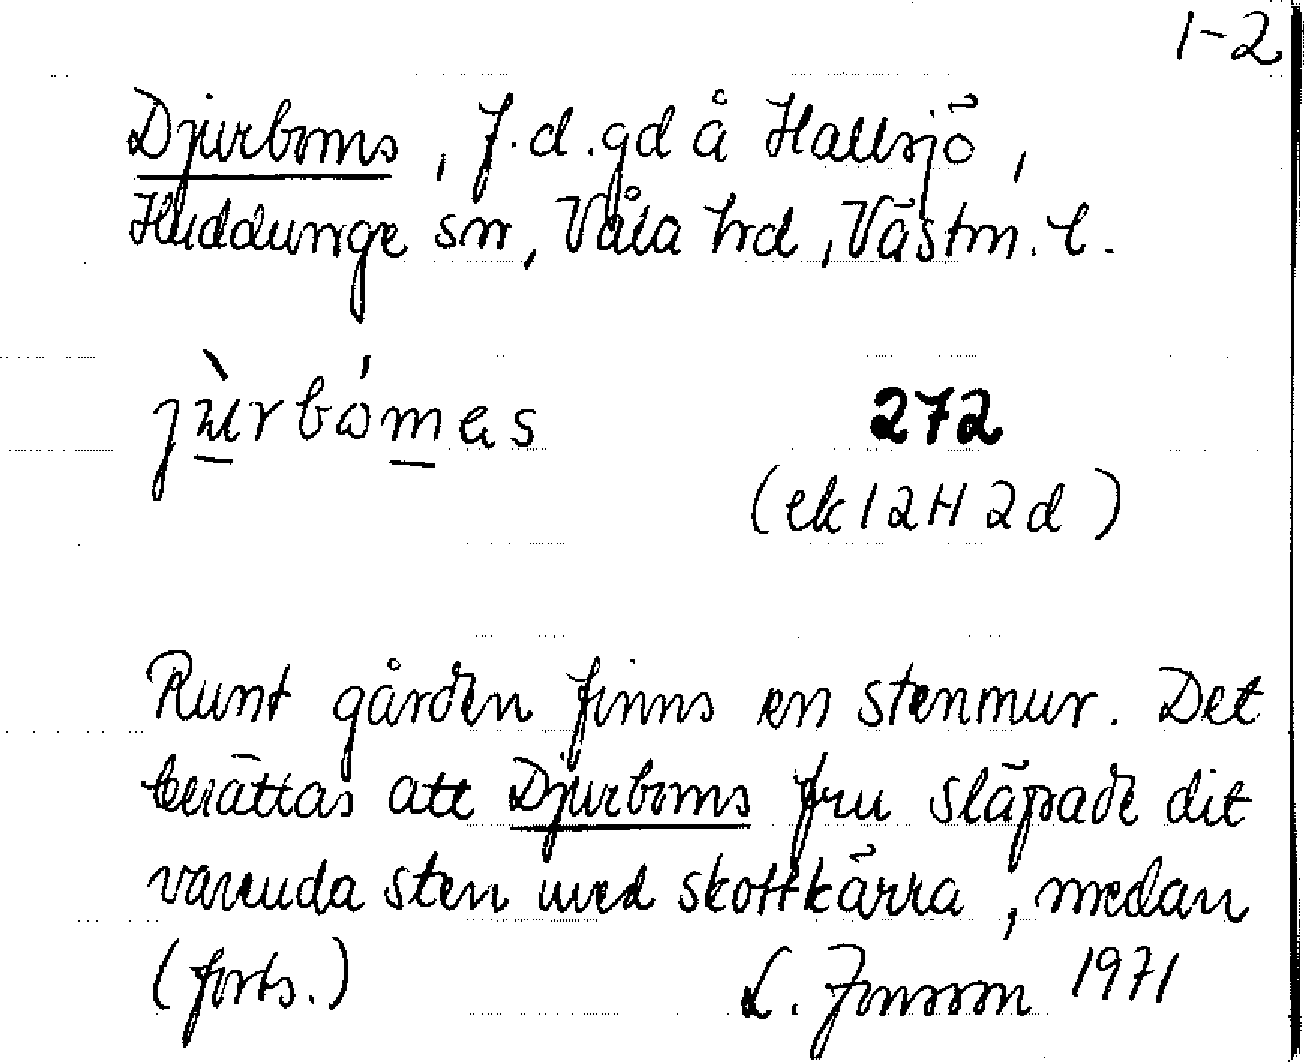 1-2
Djurboms, f.d. gd å Hallsjö,
Huddunge sn, Våla hrd, Västm. l.
jùrbómas 272
(ek 12H 2d)
Runt gården finns en stenmur. Det
berättas att Djurboms fru släpade dit
varenda sten med skottkärra, medan
(forts.) L. Jonsson 1971